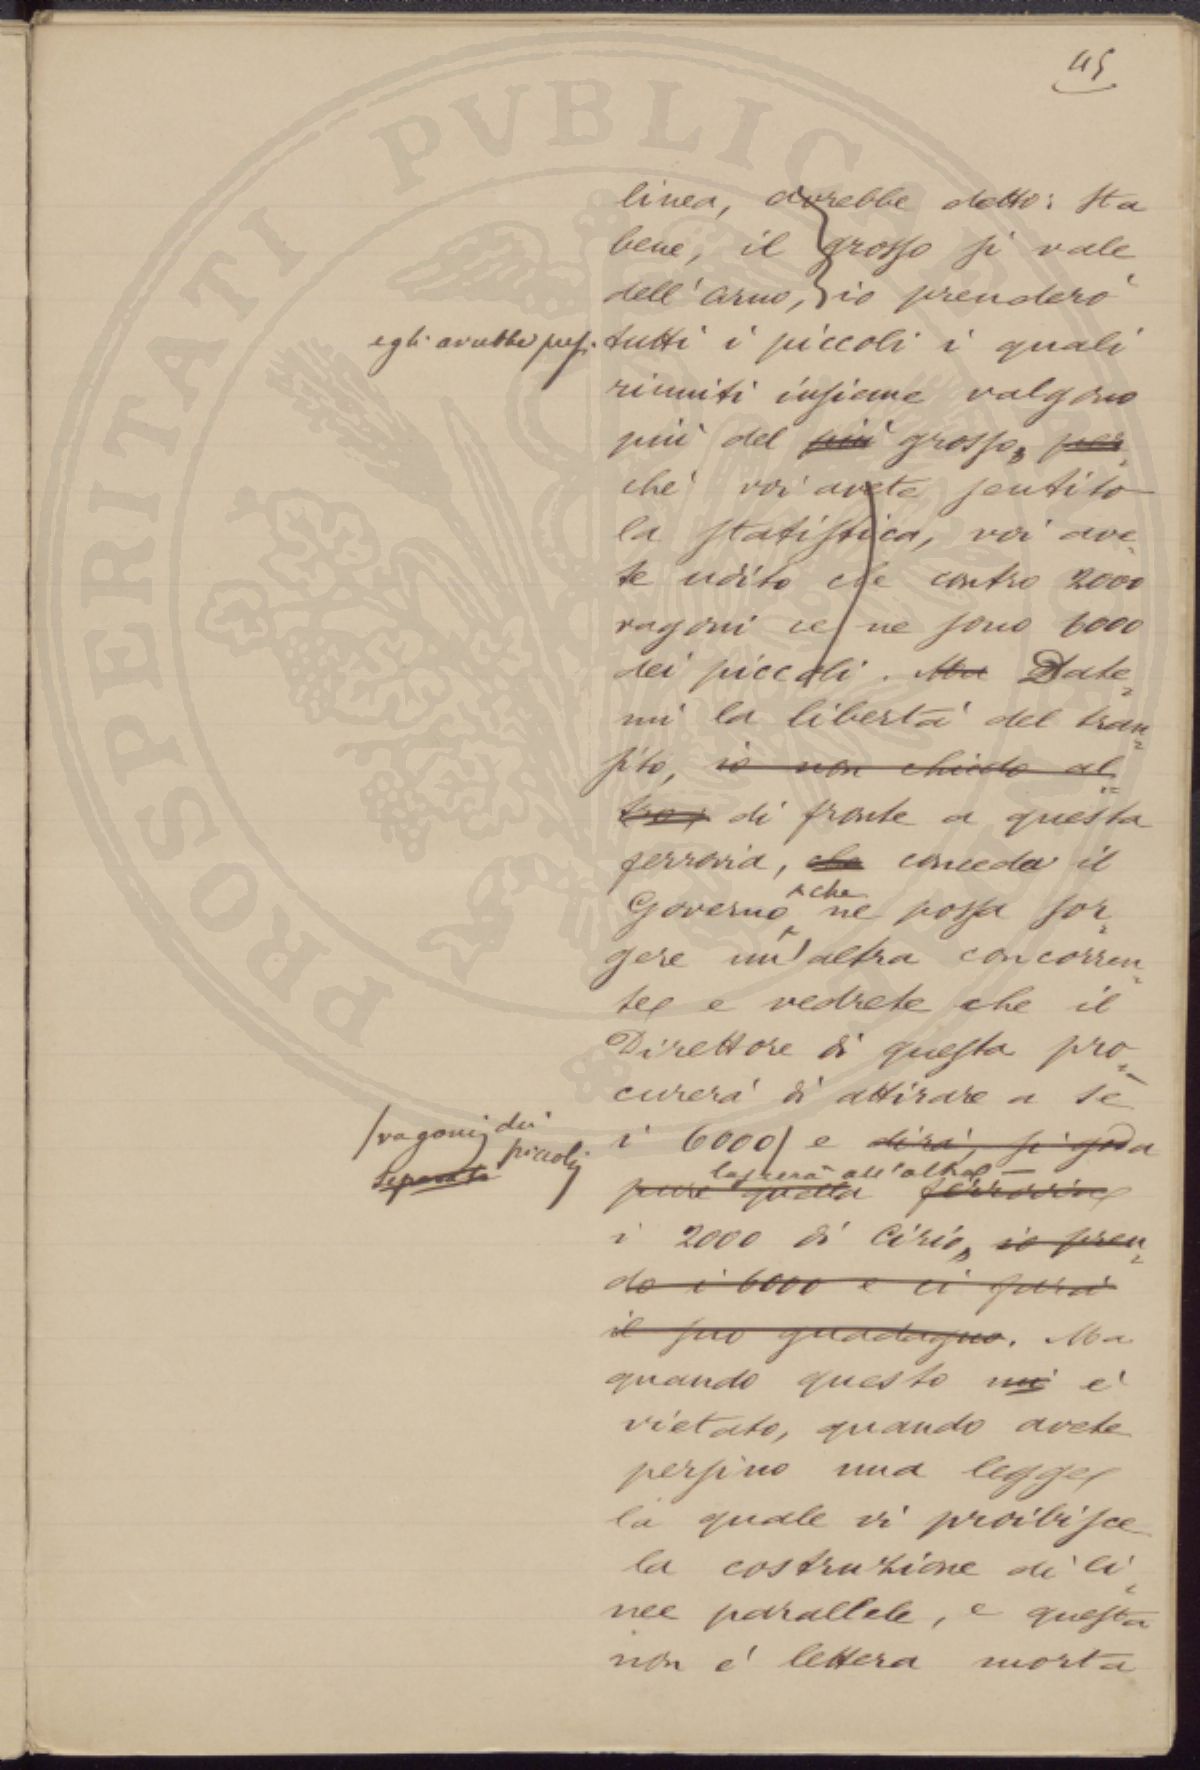 45
linea, avrebbe detto: sta
bene, il grosso si vale
dell'Arno, io prenderò
egli avrebbe presi tutti i piccoli i quali
riuniti insieme valgono
più del più grosso, per
chè voi avete sentito
la statistica, voi ave
te udito che contro 2000
vagoni ce ne sono 6000
dei piccoli. Ma Date
mi la libertà del tran
sito, io non chiedo al
tro; di fronte a questa
ferrovia, che conceda il
che
Governo ne possa sor
gere un'altra concorren
te, e vedrete che il
Direttore di questa pro
curerà di attirare a sè
i 6000 e dirà, si goda
vagoni dei
piccoli
separata
lascerà all'altra
pure quella ferrovia
i 2000 di Cirio, io pren
do i 6000 e ci farà
il suo guadagno. Ma
quando questo mi è
vietato, quando avete
persino una legge,
la quale vi proibisce
la costruzione di li
nee parallele, e questa
non è lettera morta
PROSPERITATI PVBLICAE